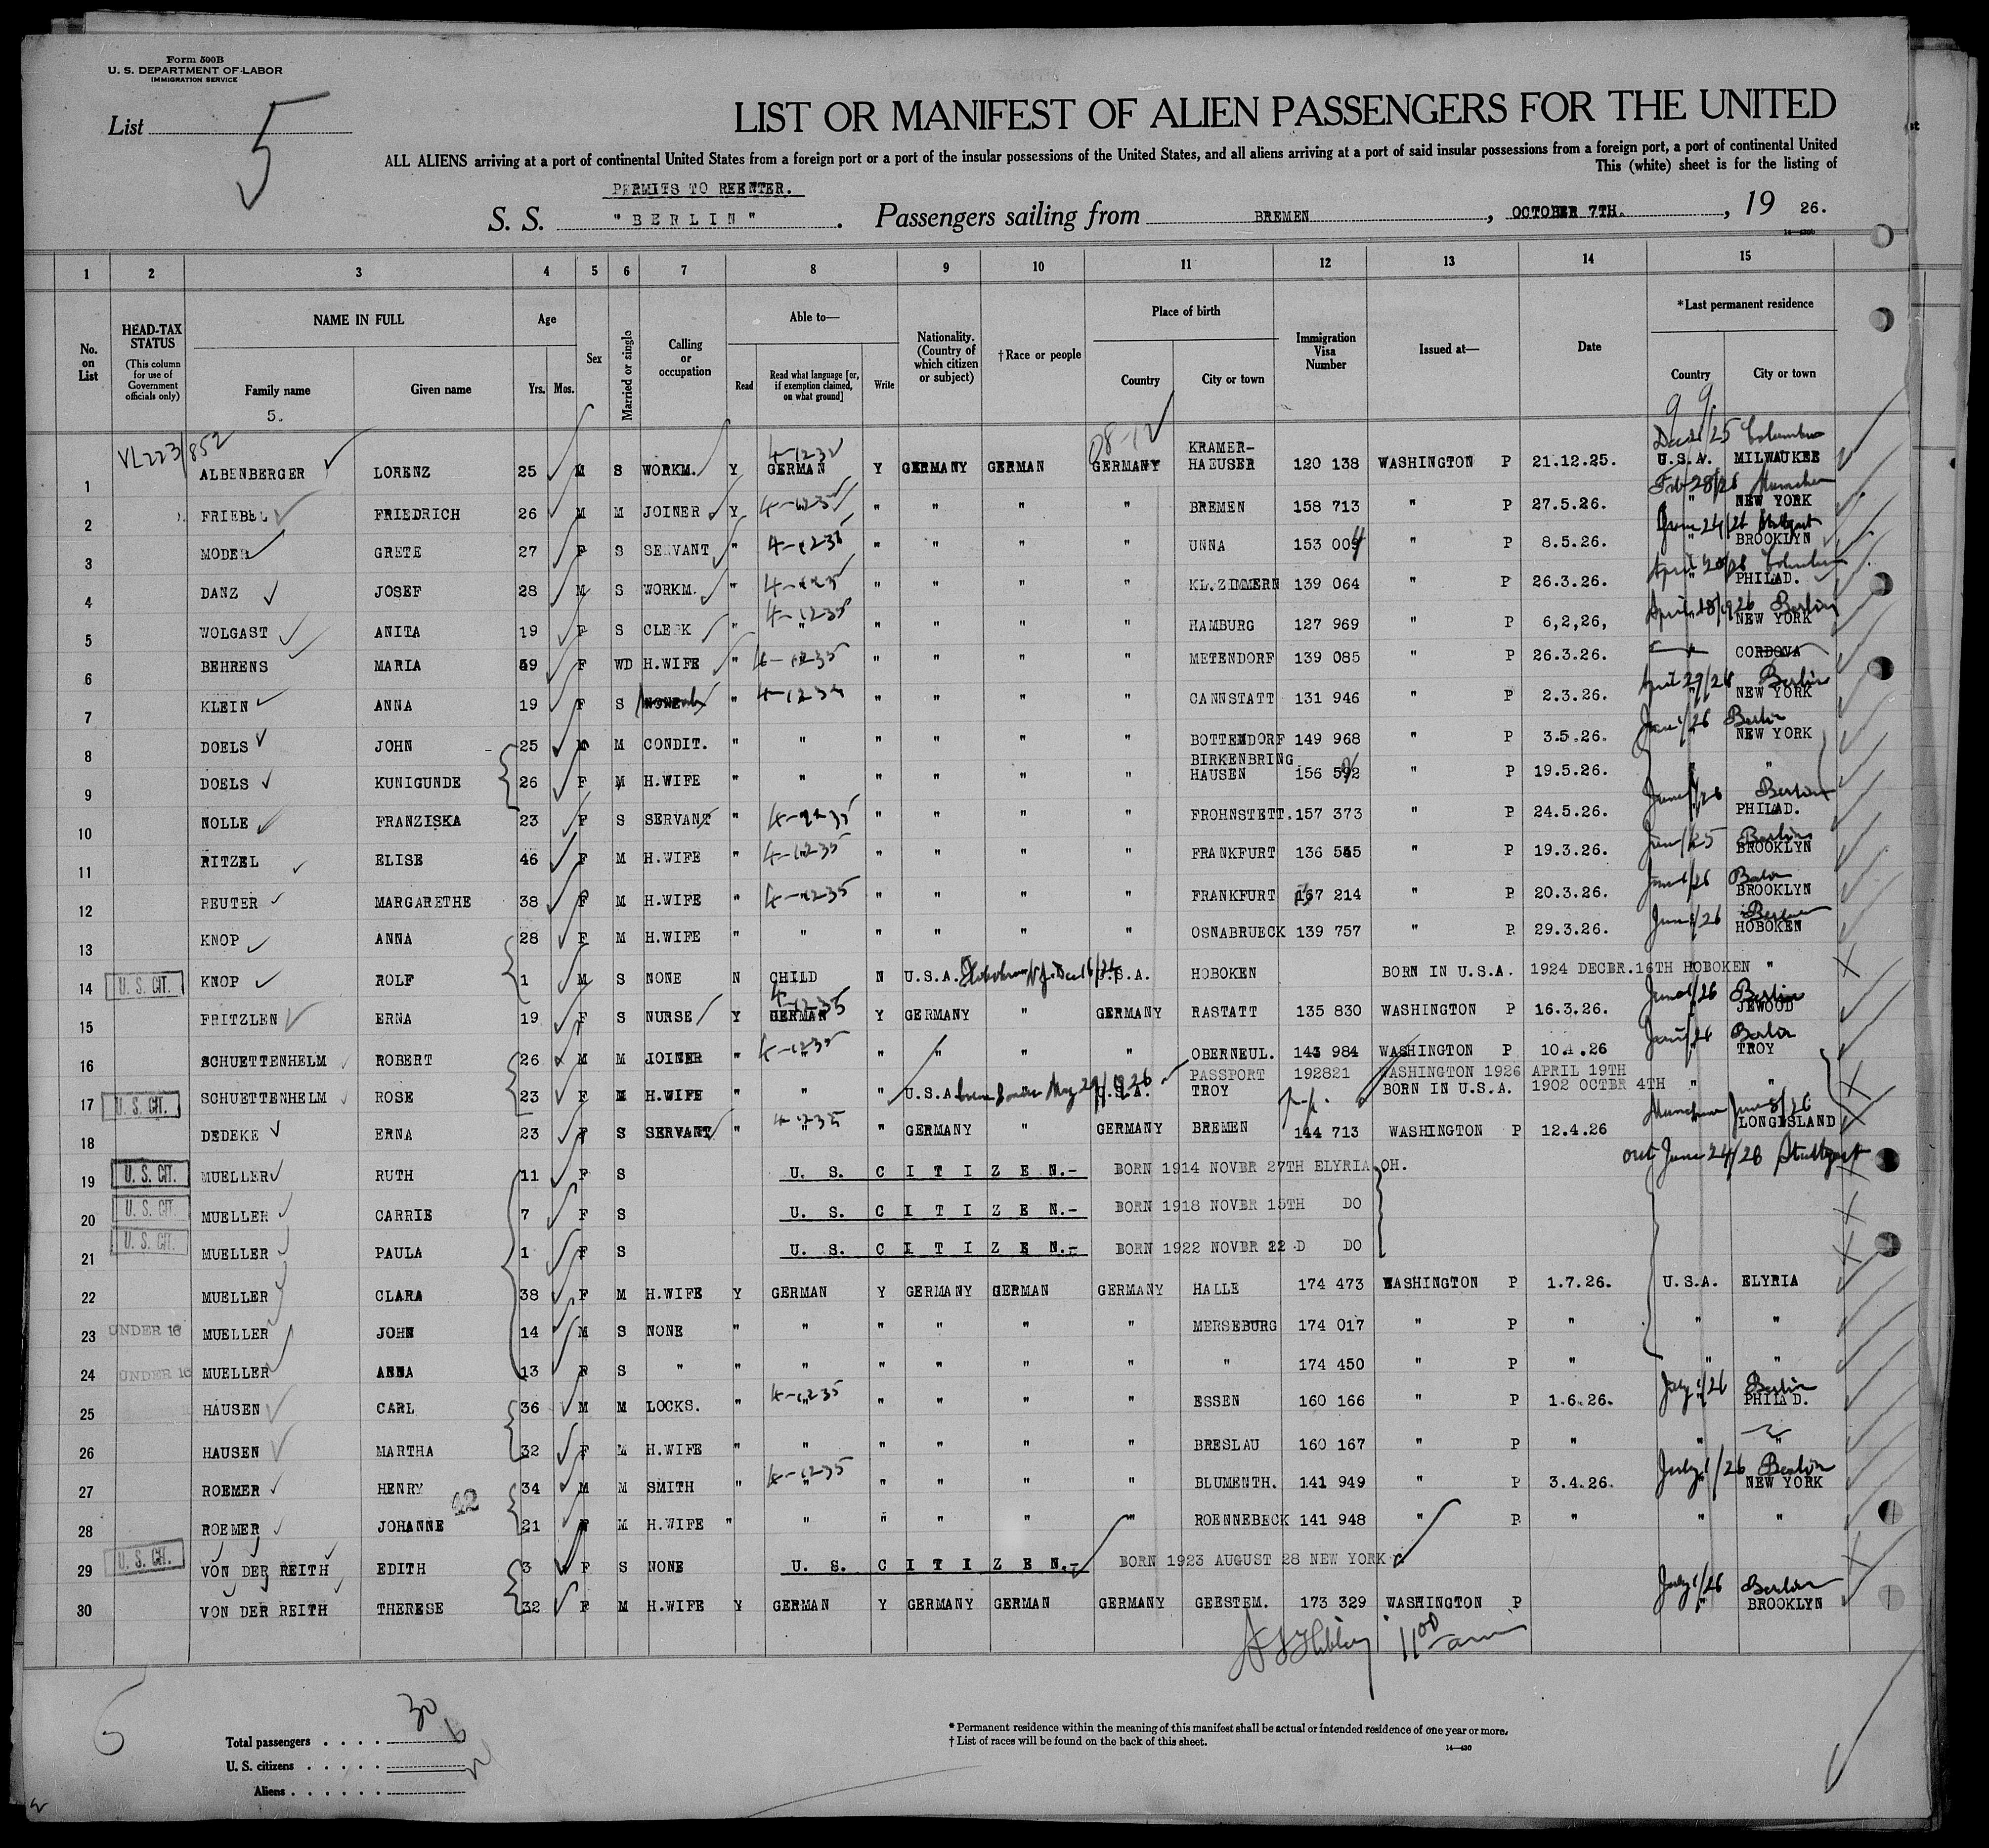 Form 500B
U. S. DEPARTMENT OF LABOR
IMMIGRATION SERVICE
List 5
LIST OR MANIFEST OF ALIEN PASSENGERS FOR THE UNITED
ALL ALIENS arriving at a port of continental United States from a foreign port or a port of the insular possessions of the United States, and all aliens arriving at a port of said insular possessions from a foreign port, a port of continental United
This (white) sheet is for the listing of
PERMITS TO REENTER.
S. S. "BERLIN". Passengers sailing from BREMEN, OCTOBER 7TH., 19 26.
14—430b
1 2 3 4 5 6 7 8 9 10 11 12 13 14 15
No. on List
HEAD-TAX STATUS (This column for use of Government officials only)
NAME IN FULL Family name Given name
5.
Age Yrs. Mos.
Sex
Married or single
Calling or occupation
Able to— Read Read what language [or, if exemption claimed, on what ground] Write
Nationality. (Country of which citizen or subject)
†Race or people
Place of birth Country City or town
Immigration Visa Number
Issued at—
Date
*Last permanent residence Country City or town
9 9.
VL223/852 08-12 Dec 21/25 Columbus
1 ALBENBERGER LORENZ 25 M S WORKM. Y GERMAN Y GERMANY GERMAN GERMANY KRAMER-HAEUSER 120 138 WASHINGTON P 21.12.25. U.S.A. MILWAUKEE
2 FRIEBEL FRIEDRICH 26 M M JOINER Y " " " " BREMEN 158 713 " P 27.5.26. " NEW YORK
Feb 28/26 Munchen
3 MODER GRETE 27 F S SERVANT " 4-1235 " " " " UNNA 153 009 " P 8.5.26. " BROOKLYN
June 24/26 Stuttgart
4 DANZ JOSEF 28 M S WORKM. " " " " " KL.ZIMMERN 139 064 " P 26.3.26. " PHILAD.
April 20/26 Columbus
5 WOLGAST ANITA 19 F S CLERK " 4-1235 " " " " " HAMBURG 127 969 " P 6,2,26, " NEW YORK
April 28/1926 Berlin
6 BEHRENS MARIA 59 F WD H.WIFE " 4-1235 " " " " METENDORF 139 085 " P 26.3.26. " CORDOVA
7 KLEIN ANNA 19 F S NONE " 4-1234 " " " " CANNSTATT 131 946 " P 2.3.26. " NEW YORK
April 29/26 Berlin
8 DOELS JOHN 25 M M CONDIT. " " " " " " BOTTENDORF 149 968 " P 3.5.26. " NEW YORK
June 1/26 Berlin
9 DOELS KUNIGUNDE 26 F M H.WIFE " " " " " " BIRKENBRING HAUSEN 156 592 " P 19.5.26. "
10 NOLLE FRANZISKA 23 F S SERVANT " " " " " FROHNSTETT. 157 373 " P 24.5.26. " PHILAD.
June 1/26 Berlin
11 RITZEL ELISE 46 F M H.WIFE " 4-1235 " " " " FRANKFURT 136 545 " P 19.3.26. BROOKLYN
June 1/25 Berlin
12 REUTER MARGARETHE 38 F M H.WIFE " 4-1235 " " " " FRANKFURT 167 214 " P 20.3.26. BROOKLYN
June 1/26 Berlin
13 KNOP ANNA 28 F M H.WIFE " " " " " " OSNABRUECK 139 757 " P 29.3.26. HOBOKEN
June 1/26 Berlin
14 U. S. CIT. KNOP ROLF 1 M S NONE N CHILD N U.S.A. U.S.A. HOBOKEN BORN IN U.S.A. 1924 DECBR.16TH HOBOKEN "
15 FRITZLEN ERNA 19 F S NURSE Y GERMAN 4-1235 Y GERMANY " GERMANY RASTATT 135 830 WASHINGTON P 16.3.26. JEWOOD
June 1/26 Berlin
16 SCHUETTENHELM ROBERT 26 M M JOINER " 4-1235 " " " " " OBERNEUL. 143 984 WASHINGTON P 10.4.26 " TROY
June 1/26 Berlin
PASSPORT 192821 WASHINGTON 1926 APRIL 19TH
17 U. S. CIT. SCHUETTENHELM ROSE 23 F M H.WIFE " " " U.S.A. U.S.A. TROY BORN IN U.S.A. 1902 OCTBR 4TH " "
18 DEDEKE ERNA 23 F S SERVANT " 4-1235 " " GERMANY " GERMANY BREMEN 144 713 WASHINGTON P 12.4.26 LONG ISLAND
Munchen June 8/26
out June 24/26 Stuttgart
19 U. S. CIT. MUELLER RUTH 11 F S U. S. CITIZEN.- BORN 1914 NOVBR 27TH ELYRIA OH.
20 U. S. CIT. MUELLER CARRIE 7 F S U. S. CITIZEN.- BORN 1918 NOVBR 15TH DO
21 U. S. CIT. MUELLER PAULA 1 F S U. S. CITIZEN.- BORN 1922 NOVBR 22 D DO
22 MUELLER CLARA 38 F M H.WIFE Y GERMAN Y GERMANY GERMAN GERMANY HALLE 174 473 WASHINGTON P 1.7.26. U.S.A. ELYRIA
23 UNDER 16 MUELLER JOHN 14 M S NONE " " " " " " MERSEBURG 174 017 " P " " "
24 UNDER 16 MUELLER ANNA 13 F S " " " " " " " " 174 450 " P " " "
25 HAUSEN CARL 36 M M LOCKS. " 4-1235 " " " " " ESSEN 160 166 " P 1.6.26. " PHILAD.
July 1/26 Berlin
26 HAUSEN MARTHA 32 F M H.WIFE " " " " " " BRESLAU 160 167 " P " " "
27 ROEMER HENRY 34 M M SMITH " 4-1235 " " " " " BLUMENTH. 141 949 " P 3.4.26. " NEW YORK
July 1/26 Berlin
42
28 ROEMER JOHANNE 21 F M H.WIFE " " " " " " ROENNEBECK 141 948 " P " " "
29 U. S. CIT. VON DER REITH EDITH 3 F S NONE U. S. CITIZEN.- BORN 1923 AUGUST 28 NEW YORK
30 VON DER REITH THERESE 32 F M H.WIFE Y GERMAN Y GERMANY GERMAN GERMANY GEESTEM. 173 329 WASHINGTON P " BROOKLYN
July 1/26 Berlin
11 00 am
Total passengers . . . . 30
U. S. citizens . . . . . 6
Aliens . . . . . .
* Permanent residence within the meaning of this manifest shall be actual or intended residence of one year or more.
† List of races will be found on the back of this sheet.
14—430